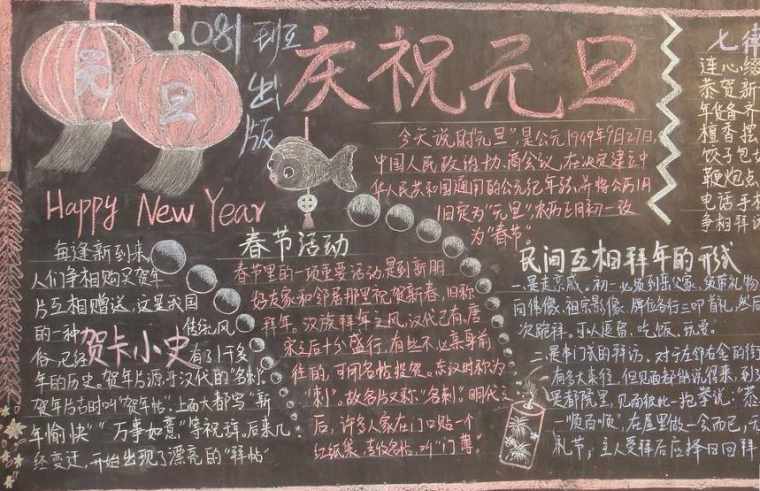 元
旦
081班
出版
庆祝元旦
今天说的"元旦",是公元1949年9月27日,
中国人民政治协商会议,在决定建立中
华人民共和国
的公元纪年
旧定为"元旦",农历正月初一
为"春节"。
Happy New Year
每逢新到来
人们争相购买贺年
片互相赠送,这是我国
的一种
佳乐,风
俗,已经
贺卡小史
有了1千多
年的历史。贺年片源于汉代的"名刺"
贺年片古时叫"贺年帖",上面大都写"新
年愉快""万事如意"等祝辞。后来几
经变迁,开始出现了漂亮的"拜帖"
春节活动
春节里的一项重要活动是到新朋
好友家和邻居那里祝贺新春,旧称
拜年。汉族拜年之风,汉代已有,唐
宋之后十分盛行,有些不必亲身前
往的,可用名帖投贺。东汉时称为
"刺",故名片又称"名刺"。明代之
后,许多人家在门口贴一个
红纸袋,专收名帖,叫"门薄"。
民间互相拜年的形式
一是走亲戚,初一必须到岳父家,须带礼物
向佛像、祖宗影像、牌位各行三叩首礼,然后
次跪拜。可以逗留、吃饭、玩耍。
二是串门式的拜访。对于左邻右舍的街
有多大来往,但见面都能说得来,到了
里都院里,见面彼此一抱拳说:"恭
一顺百顺",在屋里做一会而已,无
礼节;主人受拜后应择日回拜
七律
连心
恭贺新
年货备齐
檀香摆
饺子包
鞭炮点
电话手
争相拜访